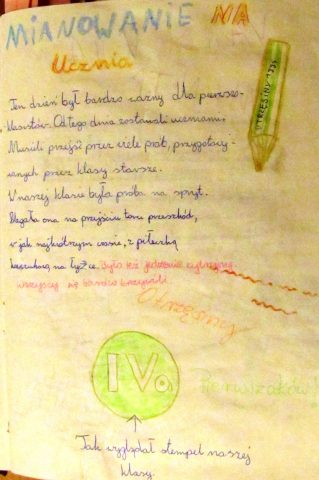 MIANOWANIE NA
Ucznia
OTRZĘSINY 1995
Ten dzień był bardzo ważny dla pierwszo-
klasistów. Od tego dnia zostaniki uczniami.
Musieli przejść przez wiele prób, przygotowy-
wanych przez klasy starsze.
W naszej klasie była próba na spryt.
Polegała ona na przejściu toru przeszkód,
w jak najkrótszym czasie, z piłeczką
na łyżce. Było też jedzenie cytryny,
wszyscy się bardzo krzywili
Otrzęsiny
IVa
Pierwszaków!
Jak wyglądał stempel naszej
klasy.